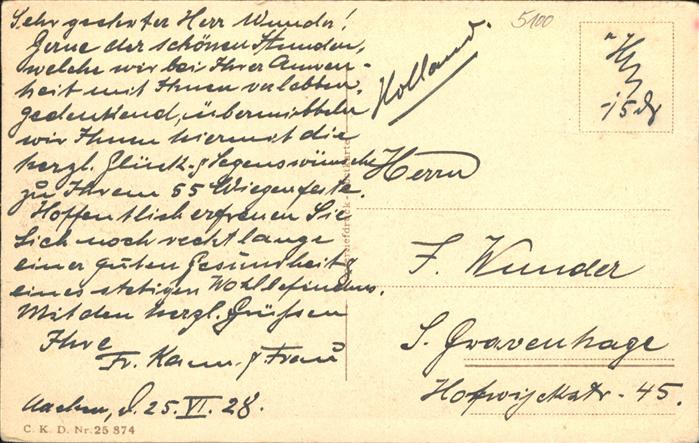 Sehr geehrter Herr Wunder!
Gerne der schönen Stunden,
welche wir bei Ihrer Anwen-
heit mit Ihnen verlebten,
gedenkend, übermitteln
wir Ihnen hiermit die
herzl. Glück- & Segenswünsche
zu Ihrem 55 Wiegenfeste.
Hoffentlich erfreuen Sie
sich noch recht lange
einer guten Gesundheit &
eines stetigen Wohlbefindens.
Mit den herzl. Grüßen
Ihre
Fr. Kamm. & Frau
Aachen, d. 25. VI. 28.
C. K. D. Nr. 25 874
5100
Holland.
-15
Herrn
F. Wunder
S. Gravenhage
Hofwijckstr - 45.